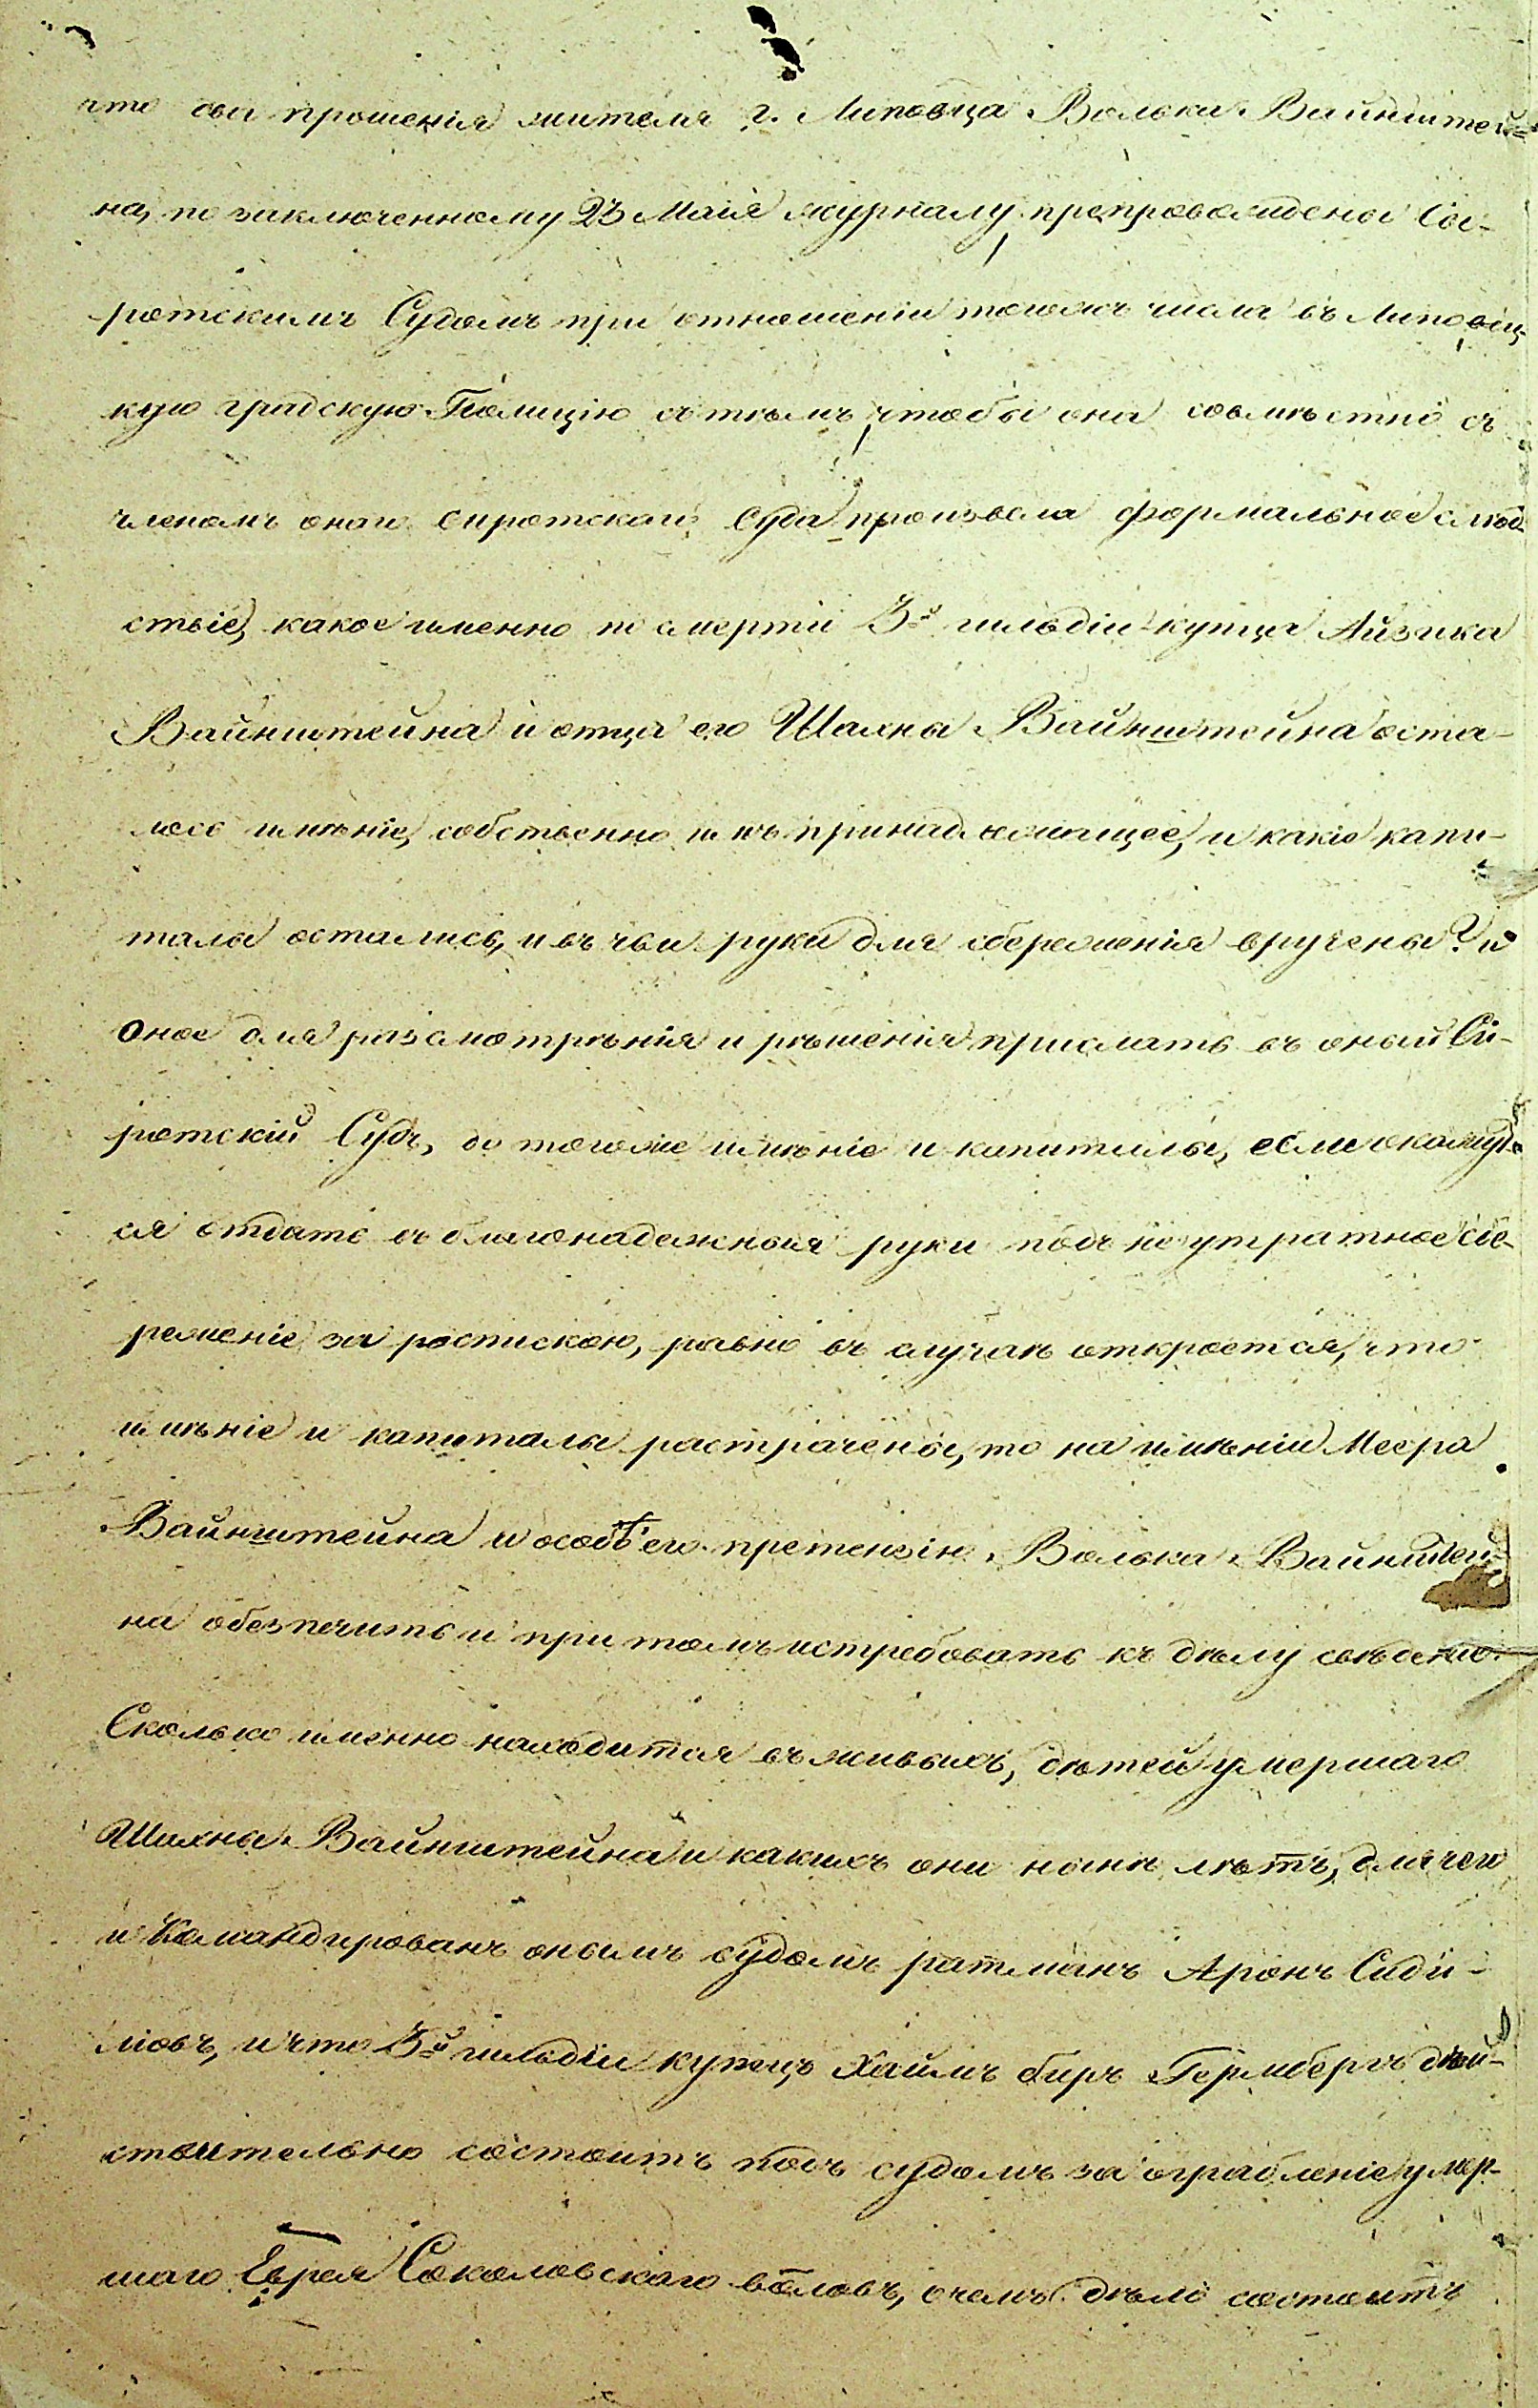 что два прошенія жителя г. Липовца Вольки Вайнштей-
на, по заключенному 23 Маія журналу препровождены Си-
ротскимъ Судомъ при отношеніи тогожъ числа въ Липовец-
кую градскую Полицію съ тѣмъ, чтобы она совмѣстно съ
членомъ онаго сиротскаго суда произвела формальное слѣд-
ствіе, какое именно по смерти 3й гильдіи купца Айзика
Вайнштейна и отца его Шахны Вайнштейна оста-
лось имѣніе, собственно имъ принадлежащее, и какіе капи-
талы остались, и въ чьи руки для сбереженія вручены? и
оное для разсмотрѣнія и рѣшенія прислать въ оный Си-
ротскій Судъ, до тогоже имѣніе и капиталы, если окажут-
ся отдать въ благонадежныя руки подъ неутратное сбе-
реженіе за роспискою, равно въ случаѣ откроется, что
имѣніе и капиталы растрачены, то на имѣніи Меера
Вайнштейна и особѣ его претензію Волька Вайнштей-
на обезпечить и при томъ истребовать къ дѣлу свѣденіе
Сколько именно находится въ живыхъ, дѣтей умершаго
Шахны Вайнштейна и какихъ они нынѣ лѣтъ, для чего
и командированъ онымъ судомъ ратманъ Аронъ Сади-
ковъ, и что 3й гильдіи купецъ Хаимъ беръ Геримбергъ дѣй-
ствительно состоитъ подъ судомъ за ограбленіе умер-
шаго Еврея Соколовскаго воловъ, о чемъ дѣло состоитъ